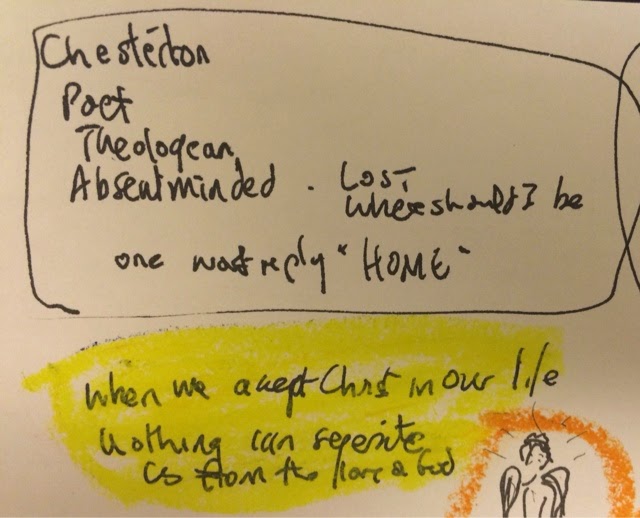 Chesterton
Poet
Theologean
Absentminded . Lost
Where should I be
one word reply "HOME"
When we accept Christ in our life
Nothing can seperate
us from the love of God